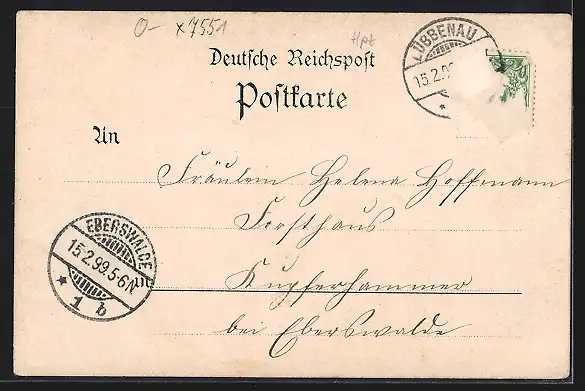 0- x7551
Hpt
LÜBBENAU
15.2.9
Deutsche Reichspost
Postkarte
An
Fräulein Helena Hoffmann
Forsthaus
Kupferhammer
bei Eberswalde
EBERSWALDE
15.2.99.5-6N
1 b